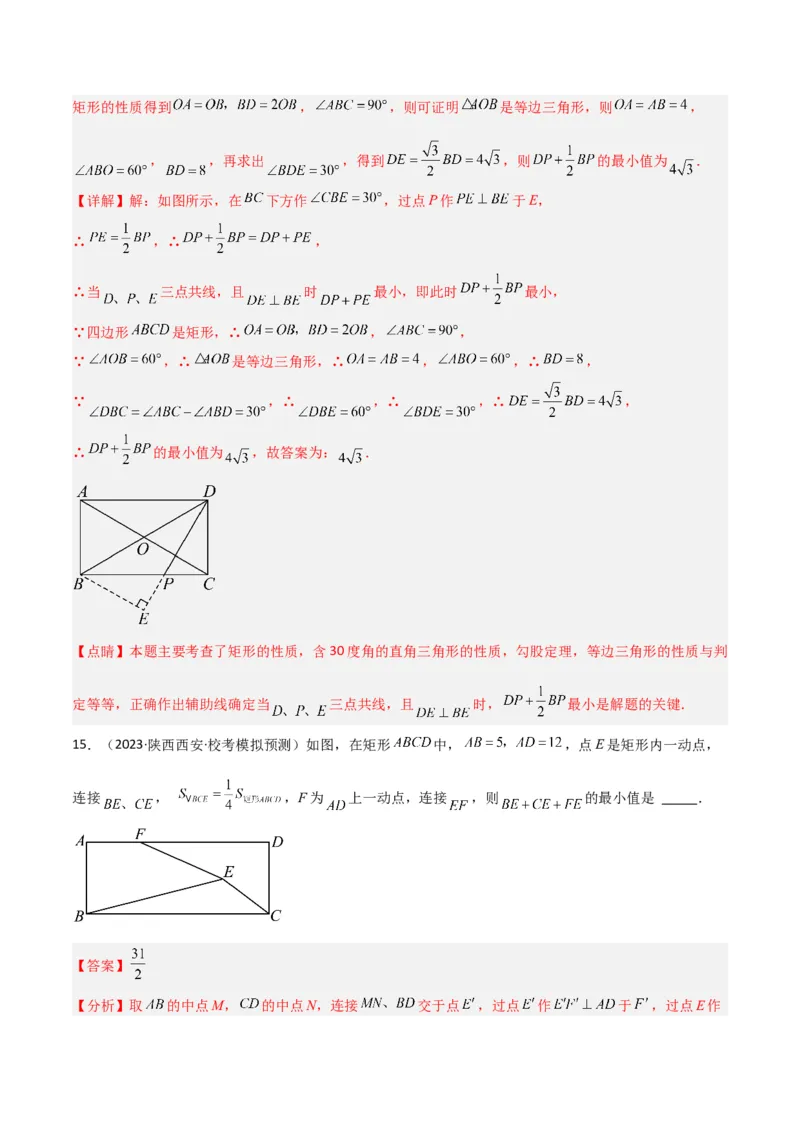 矩形的性质得到OA=OB，BD=2OB，∠ABC=90°，则可证明△AOB是等边三角形，则OA=AB=4，
∠ABO=60°，BD=8，再求出∠BDE=30°，得到DE=\frac{\sqrt{3}}{2}BD=4\sqrt{3}，则DP+\frac{1}{2}BP的最小值为4\sqrt{3}．
【详解】解：如图所示，在BC下方作∠CBE=30°，过点P作PE⊥BE于E，
∴PE=\frac{1}{2}BP，∴DP+\frac{1}{2}BP=DP+PE，
∴当D、P、E三点共线，且DE⊥BE时DP+PE最小，即此时DP+\frac{1}{2}BP最小，
∵四边形ABCD是矩形，∴OA=OB，BD=2OB，∠ABC=90°，
∵∠AOB=60°，∴△AOB是等边三角形，∴OA=AB=4，∠ABO=60°，∴BD=8，
∵∠DBC=∠ABC−∠ABD=30°，∴∠DBE=60°，∴∠BDE=30°，∴DE=\frac{\sqrt{3}}{2}BD=4\sqrt{3}，
∴DP+\frac{1}{2}BP的最小值为4\sqrt{3}，故答案为：4\sqrt{3}．
A D
O
B P C
E
【点睛】本题主要考查了矩形的性质，含30度角的直角三角形的性质，勾股定理，等边三角形的性质与判
定等等，正确作出辅助线确定当D、P、E三点共线，且DE⊥BE时，DP+\frac{1}{2}BP最小是解题的关键．
15．（2023·陕西西安·校考模拟预测）如图，在矩形ABCD中，AB=5，AD=12，点E是矩形内一动点，
连接BE、CE，S_{∨BCE}=\frac{1}{4}S_{ABCD}，F为AD上一动点，连接EF，则BE+CE+FE的最小值是 _____．
A F D
E
B C
【答案】\frac{31}{2}
【分析】取AB的中点M，CD的中点N，连接MN、BD交于点E′，过点E′作E′F′⊥AD于F′，过点E作